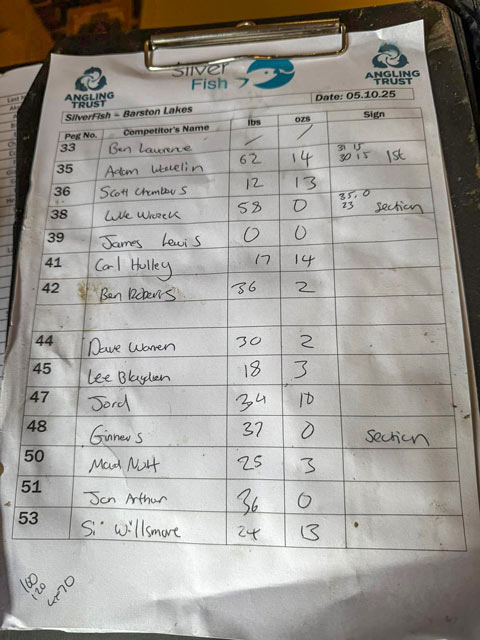 ANGLING TRUST
Silver Fish
ANGLING TRUST
SilverFish - Barston Lakes
Date: 05.10.25
Peg No. Competitor's Name lbs ozs Sign
33 Ben Lawrence / /
35 Adam 62 14 31 15 30 15 1st
36 Scott Chambers 12 13
38 Luke 58 0 35.0 23 section
39 James Lewis 0 0
41 Carl Hulley 17 14
42 Ben Roberts 36 2
44 Dave Warren 30 2
45 Lee Blaydon 18 3
47 Jord 34 10
48 Ginners 37 0 Section
50 Nutt 25 3
51 Jon Arthur 36 0
53 Si Willsmore 24 13
100
120